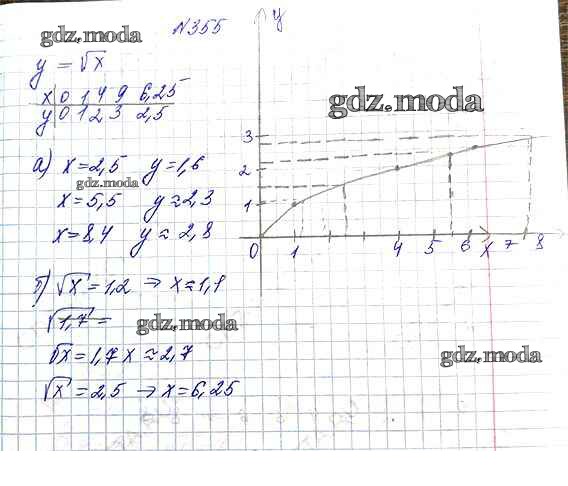 gdz.moda
№355
y
y = √x
x 0 1 4 9 6,25
y 0 1 2 3 2,5
gdz.moda
а) x = 2,5 y = 1,6
gdz.moda
x = 5,5 y ≈ 2,3
x = 8,4 y ≈ 2,8
3
2
1
0 1 4 5 6 x 7 8
б) √x = 1,2 ⇒ x ≈ 1,1
√1,7 =
gdz.moda
√x = 1,7 x ≈ 2,7
gdz.moda
√x = 2,5 → x = 6,25